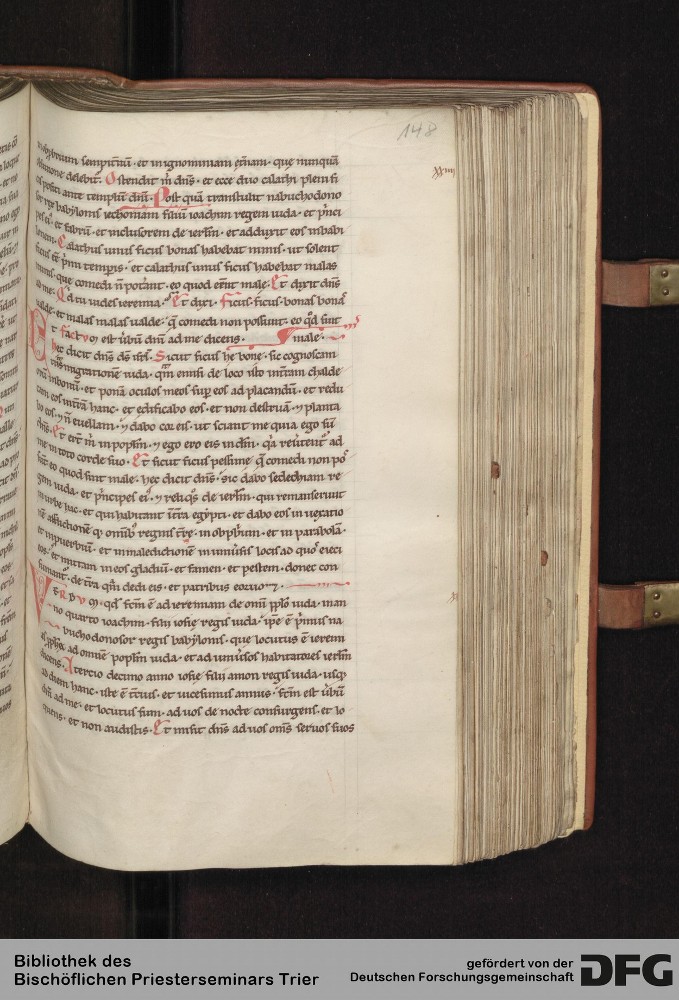 148
obprium sempit̄nū · et in ignominiam et̄nam · que nunquā
obliuione delebit͛. Ostendit m̄ dn̄s · et ecce duo calathi pleni fi
cis positi ante templū dn̄i. Post quā transtulit nabuchodono
sor rex babylonis iechoniam filiū ioachim regem iuda · et p̄nci
pes ei᷒ · et fabrū · et inclusorem de ierl̄m · et adduxit eos in babi
lonem. Calathus unus ficus bonas habebat nimis · ut solent
ficus eē p̄mi temporis · et calathus unus ficus habebat malas
nimis · que comedi n̄ poterant · eo quod eēnt male. Et dixit dn̄s
ad me. Qd tu uides ieremia? Et dixi. Ficus · ficus bonas bonas
ualde · et malas malas ualde · que comedi non possunt · eo qd sint
Et factvm est uerbū dn̄i ad me dicens. male.
xxiiii
hec dicit dn̄s ds isrl. Sicut ficus he bone · sic cognoscam
transmigrationem iuda · quam emisi de loco isto in terram chalde
orū in bonū · et ponā oculos meos super eos ad placandū · et redu
cam eos in terrā hanc · et edificabo eos · et non destruā · et planta
bo eos · et n̄ euellam · et dabo cor eis · ut sciant me quia ego sū
dn̄s. Et erunt m̄ in populum · et ego ero eis in dm̄ · quia reuertent᷒ ad
me in toto corde suo. Et sicut ficus pessime que comedi non pos
sunt eo quod sint male · hec dicit dn̄s · sic dabo sedechiam re
gem iuda · et p̄ncipes ei᷒ · et reliquos de ierl̄m · qui remanserunt
in urbe hac · et qui habitant in terra egypti · et dabo eos in uexatio
nē afflictionē que omnibus regnis terre · in obprium · et in parabolā ·
et in puerbiū · et in maledictionē in uniuersis locis ad quos eieci
eos · et mittam in eos gladiū · et famen · et pestem · donec con
sumant᷒ · de terra quā dedi eis · et patribus eorum.
Verbvm · qd factum ē ad ieremiam de omni populo iuda · in an
no quarto ioachim · filii iosie regis iuda · ipse ē primus na
buchodonosor regis babylonis · que locutus ē ieremi
as propheta ad omnē populum iuda · et ad uniuersos habitatores ierl̄m
dicens. A tercio decimo anno iosie filii amon regis iuda · usque
ad diem hanc · iste ē tercius · et uicesimus annus · factum est uerbū
dn̄i ad me · et locutus sum · ad uos de nocte consurgens · et lo
quens · et non audistis. Et misit dn̄s ad uos omēs seruos suos
Bibliothek des
Bischöflichen Priesterseminars Trier
gefördert von der
Deutschen Forschungsgemeinschaft
DFG